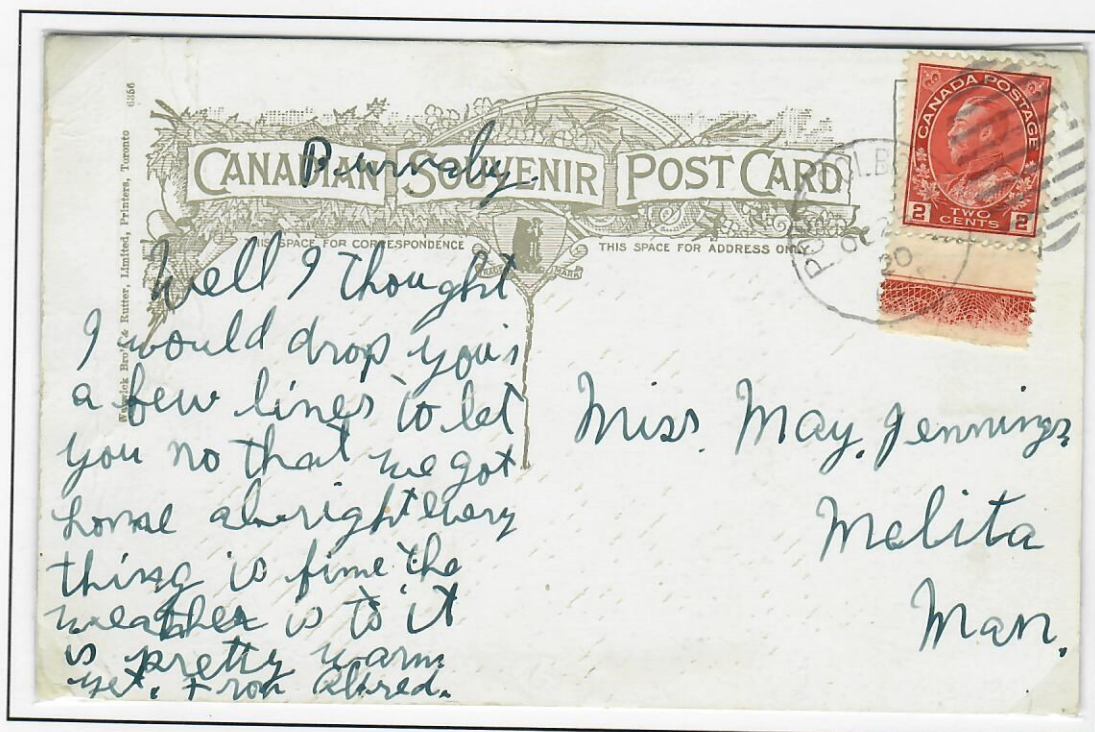 6356
Warwick Bro's & Rutter, Limited, Printers, Toronto
CANADIAN SOUVENIR POST CARD
THIS SPACE FOR CORRESPONDENCE
THIS SPACE FOR ADDRESS ONLY
TRADE MARK
CANADA POSTAGE
2 TWO CENTS 2
20
Well I thought
I would drop you
a few lines to let
you no that we got
home alwright every
thing is fine the
weather is to it
is pretty warm
yet. From Alfred.
Miss. May. Jennings,
Melita
Man.